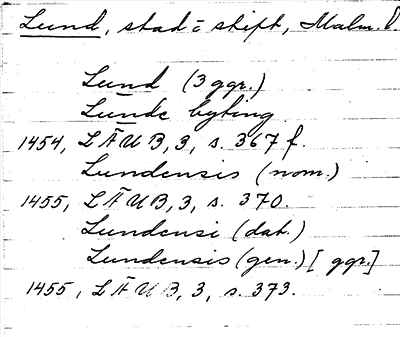 Lund, stad o stift, Malm. l.
Lund (3 ggr.)
Lunde byting
1454, L Ä U B, 3, s. 367 f.
Lundensis (nom.)
1455, L Ä U B, 3, s. 370.
Lundensi (dat.)
Lundensis (gen.) [ ggr.]
1455, L Ä U B, 3, s. 373.